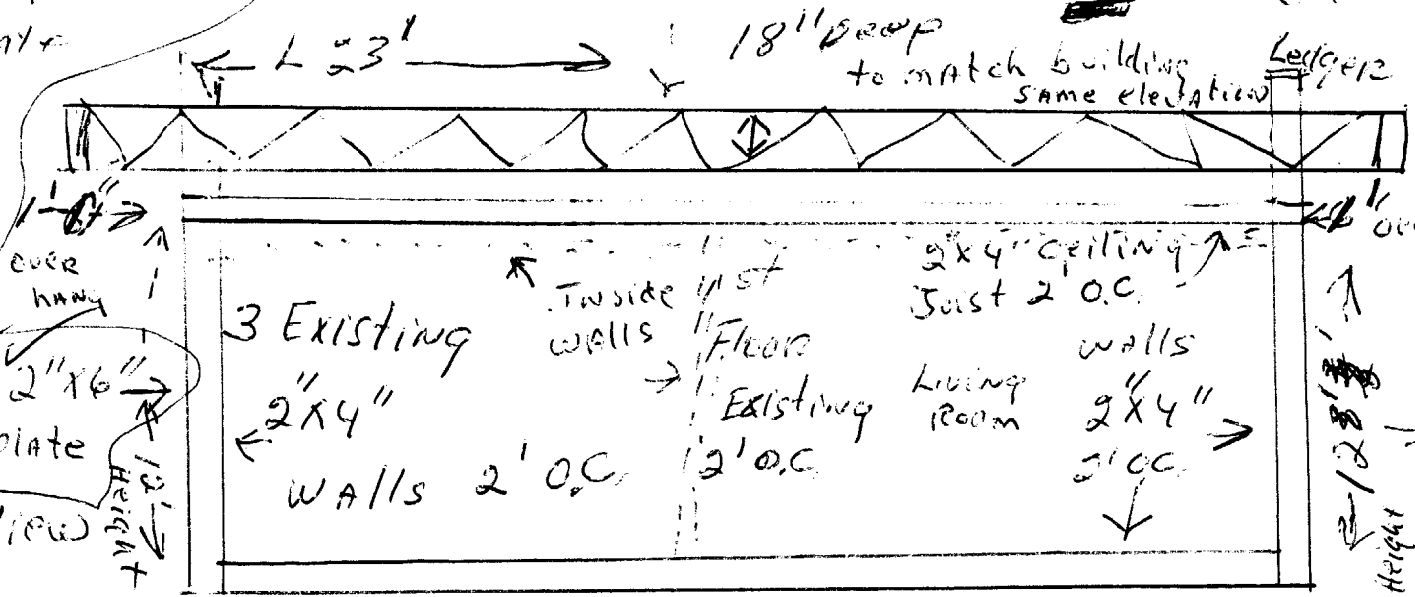 L 23'
18" Deep
to match building
same elevation
Ledger
over
hang
2"x6"
Plate
12'
Height
3 Existing
2"x4"
Walls 2' O.C.
Inside
Walls
1st
Floor
Existing
2' O.C.
Living
Room
2"x4" Ceiling
Joist 2' O.C.
Walls
2"x4"
2' O.C.
Height